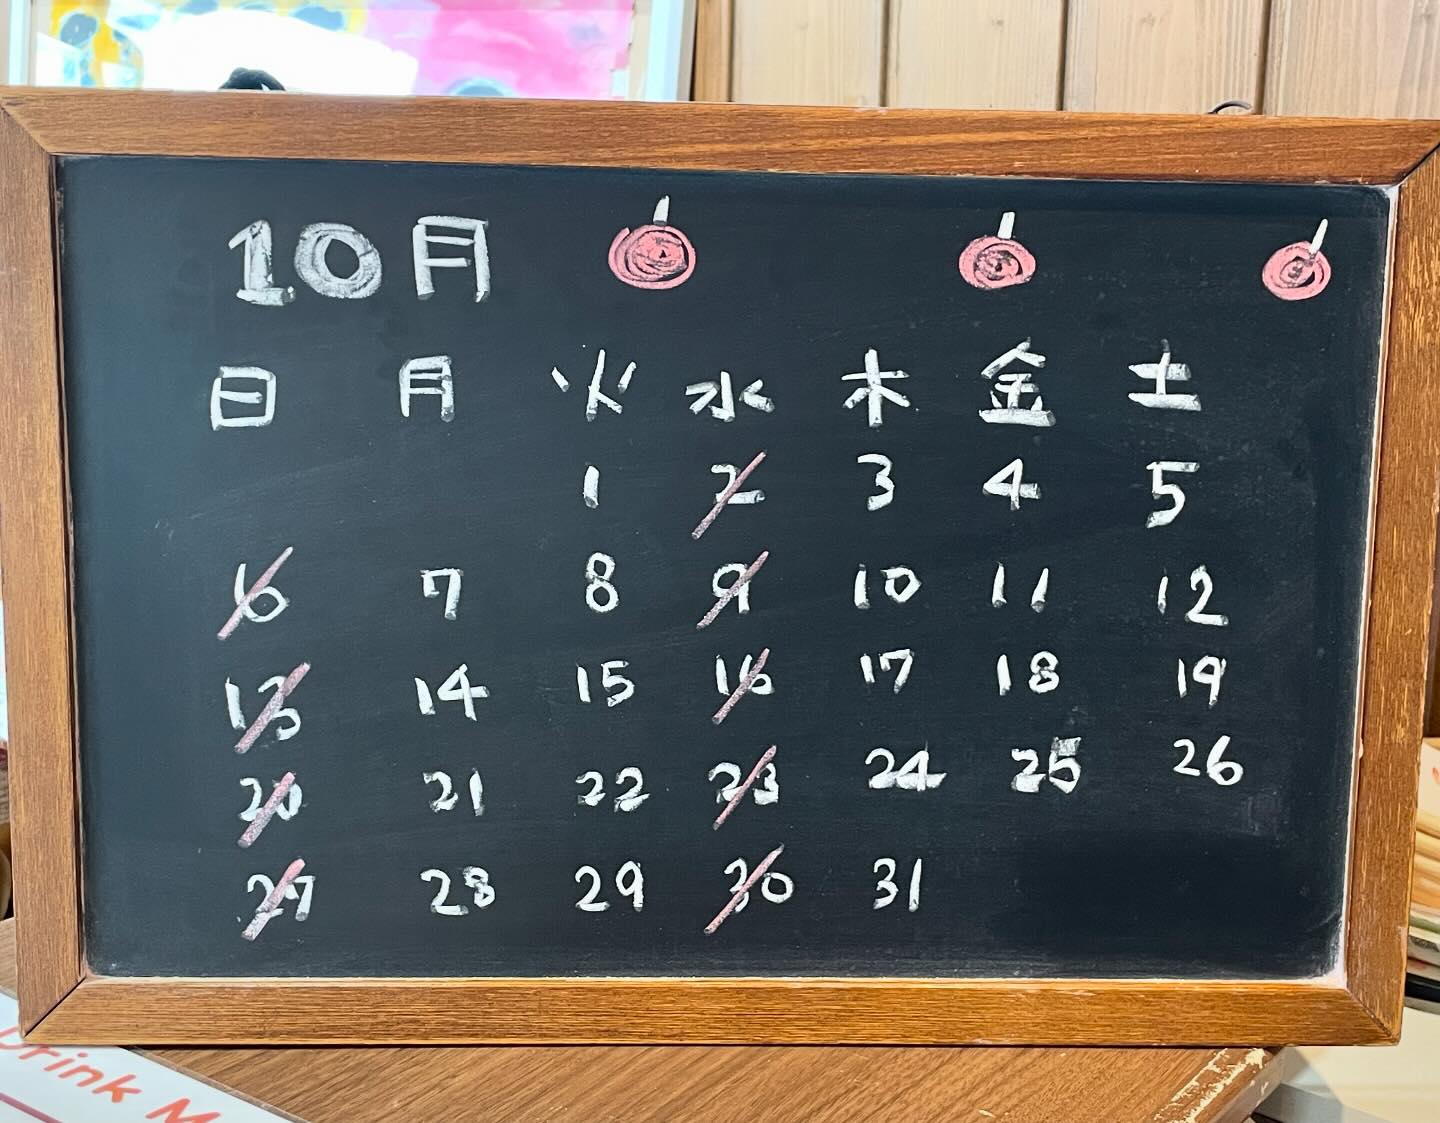 10月
日 月 火 水 木 金 土
1 2 3 4 5
6 7 8 9 10 11 12
13 14 15 16 17 18 19
20 21 22 23 24 25 26
27 28 29 30 31
Drink M